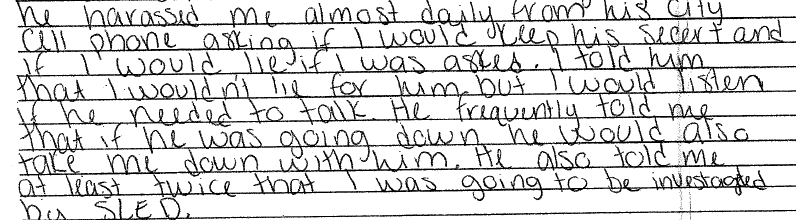 he harassed me almost daily from his city
cell phone asking if I would keep his secert and
If I would lie if I was askes. I told him
that I wouldn't lie for him but I would listen
if he needed to talk He frequently told me
that if he was going down he would also
take me down with him. He also told me
at least twice that I was going to be investagated
by SLED.